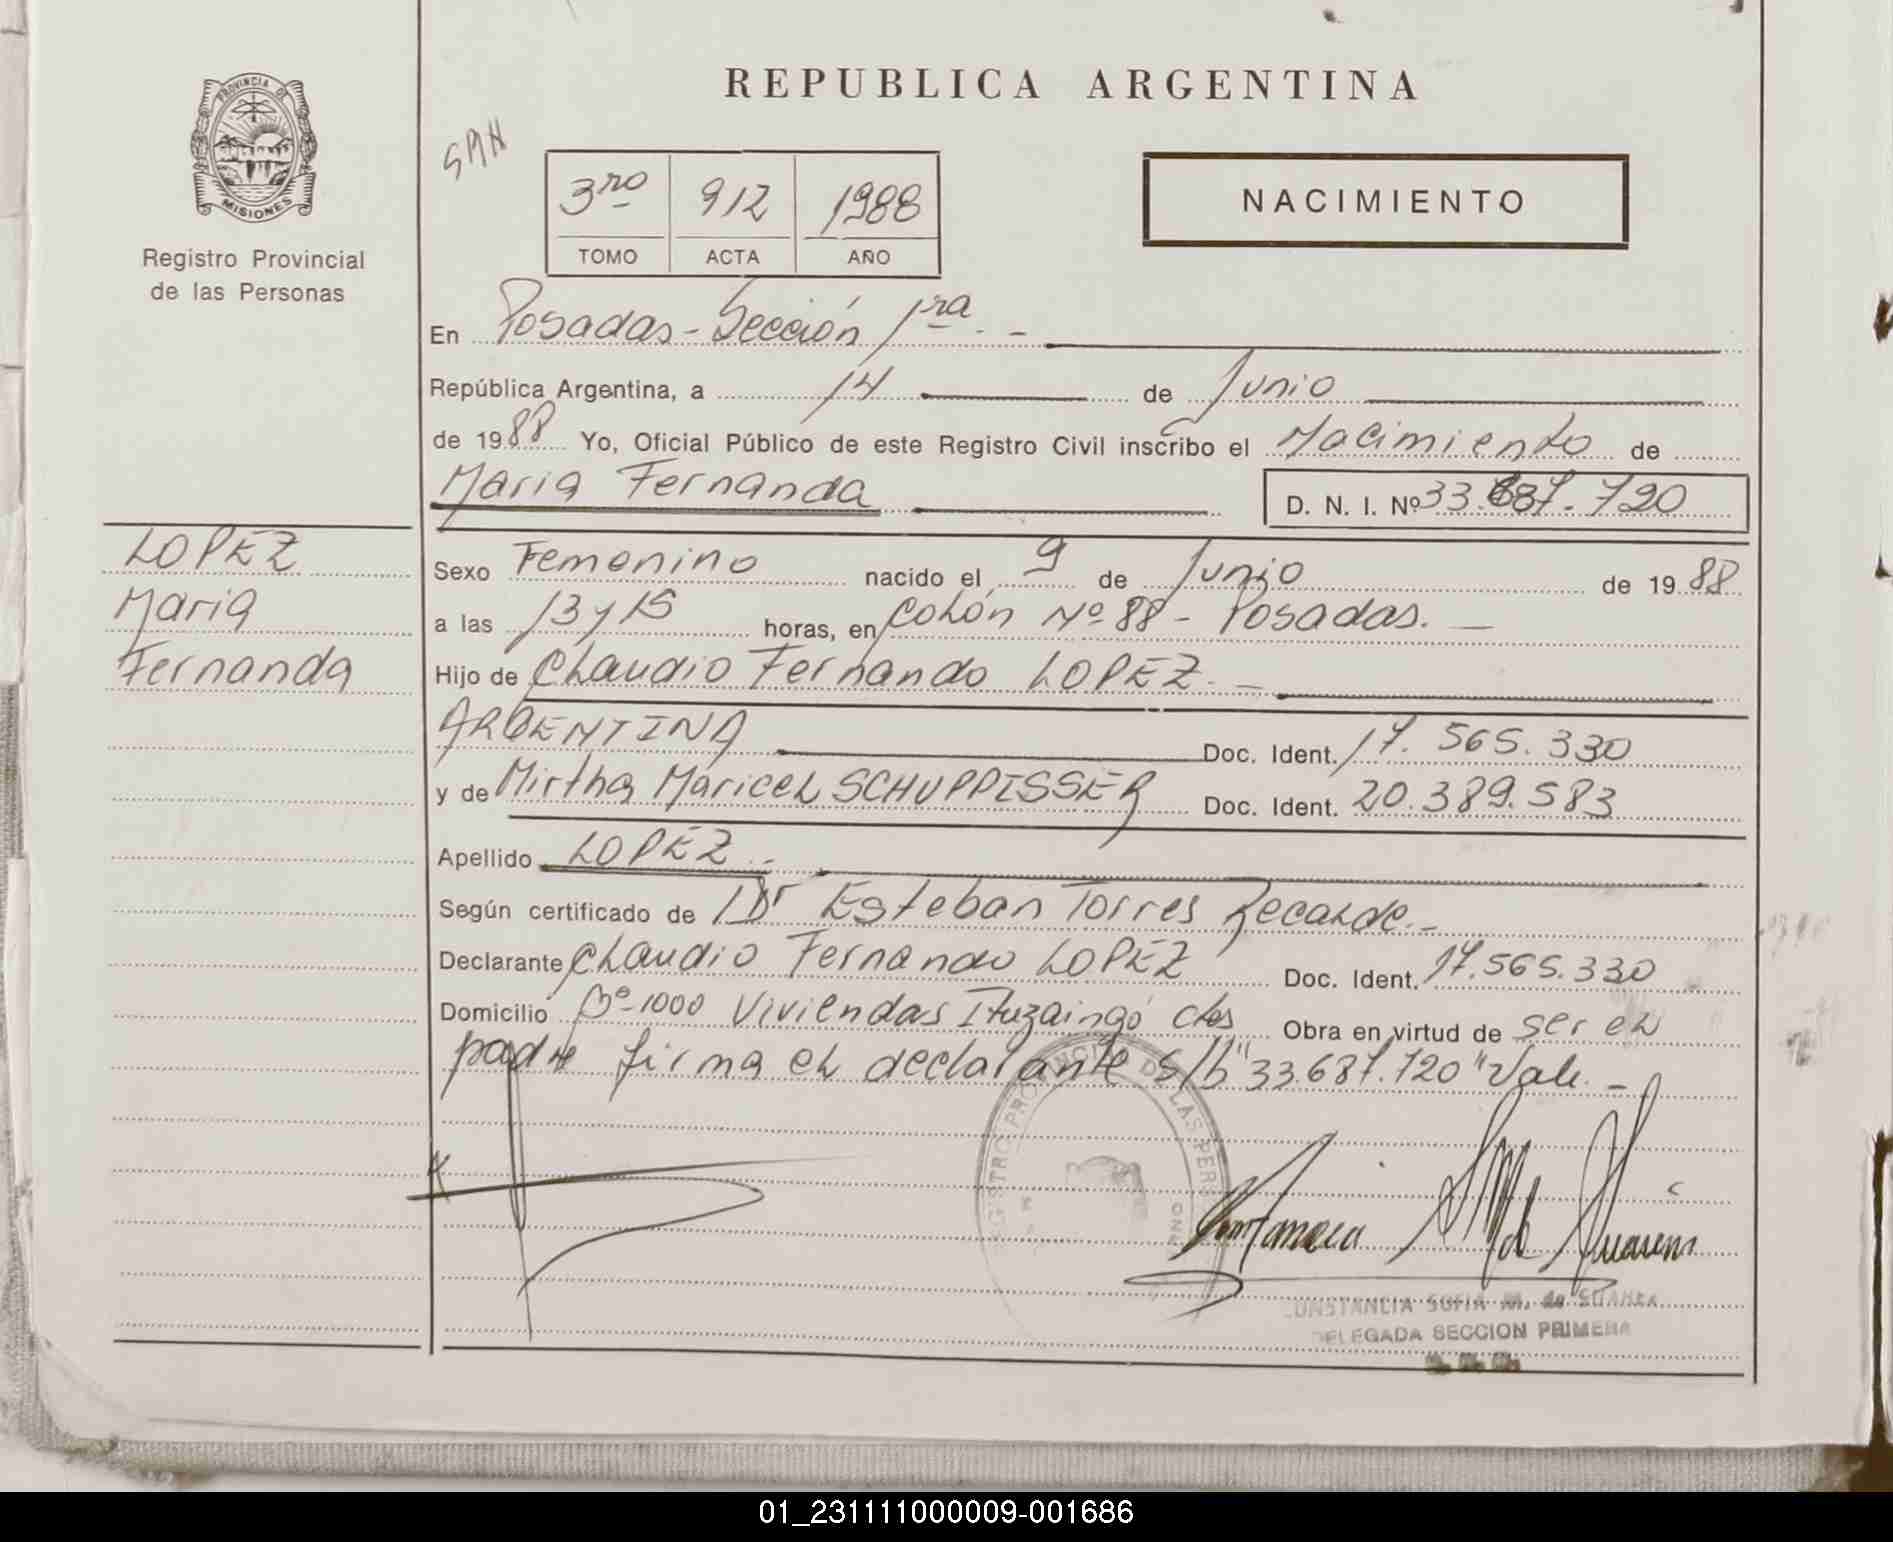 PROVINCIA DE
MISIONES
Registro Provincial
de las Personas
REPUBLICA ARGENTINA
3ro 912 1988
TOMO ACTA AÑO
NACIMIENTO
En Posadas - Sección 1ra. -
República Argentina, a 14 de Junio
de 1988 Yo, Oficial Público de este Registro Civil inscribo el Nacimiento de
Maria Fernanda D. N. I. Nº 33.687.720
LOPEZ
Maria
Fernanda
Sexo Femenino nacido el 9 de Junio de 1988
a las 13 y 15 horas, en Colón Nº 88 - Posadas. -
Hijo de Claudio Fernando LOPEZ. -
ARGENTINA Doc. Ident. 17.565.330
y de Mirtha Maricel SCHUPPISSER Doc. Ident. 20.389.583
Apellido LOPEZ.-
Según certificado de Dr Esteban Torres Recalde.-
Declarante Claudio Fernando LOPEZ Doc. Ident. 17.565.330
Domicilio Bº 1000 Viviendas Ituzaingó Ctes Obra en virtud de ser el
padre firma el declarante s/b "33.687.720" Vale. -
CONSTANCIA SOFIA M. de
DELEGADA SECCION PRIMERA
01_231111000009-001686